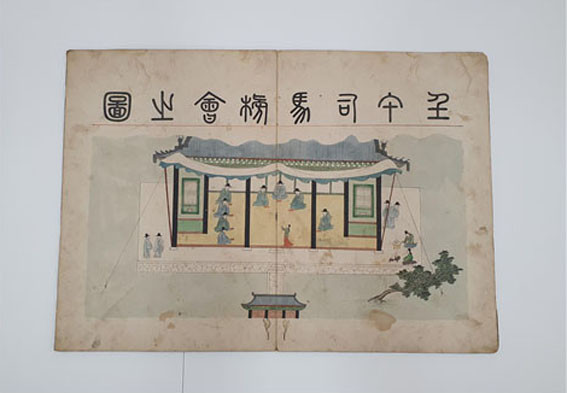 壬午司馬榜會之圖